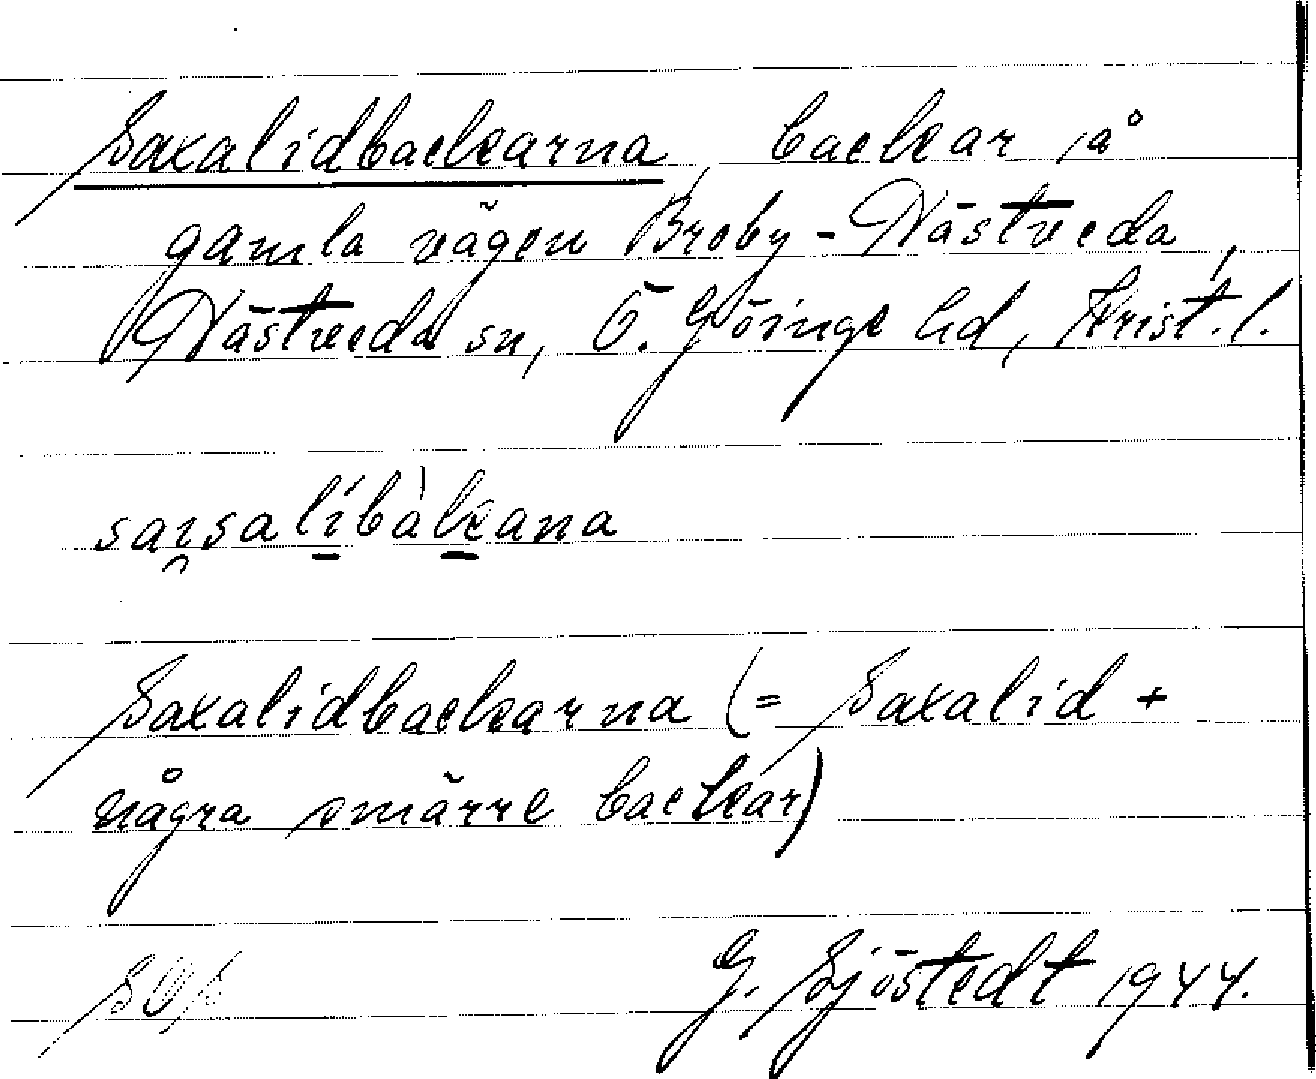 Saxalidbackarna, backar å
gamla vägen Broby - Västreda,
Nästreda sn, Ö. Göinge hd, Krist. l.
Saxalidbackarna (= Saxalid +
några smärre backar)
G. Sjöstedt 1944.